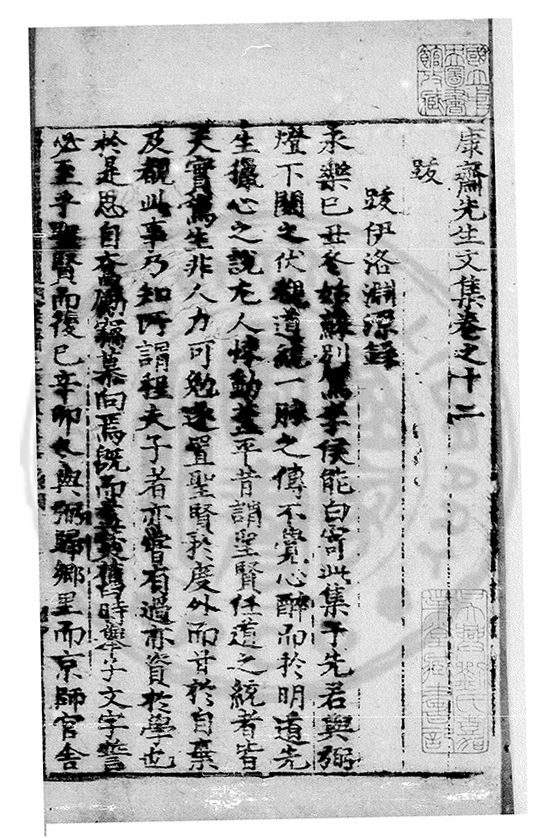 康齋先生文集卷之十二
跋
跋伊洛淵源錄
永樂己丑冬姑蘇別駕李侯能白寄此集于先君與弼
燈下閱之伏觀道統一脉之傳不覺心醉而於明道先
生獵心之說尤人悚動蓋平昔謂聖賢任道之統者皆
天實篤生非人力可勉遂置聖賢於度外而甘於自棄
及觀此事乃知所謂程夫子者亦嘗有過亦資於學也
於是思自奮勵竊慕向焉既而盡焚舊時舉子文字誓
必至乎聖賢而後已辛卯冬與弼歸鄉里而京師官舍